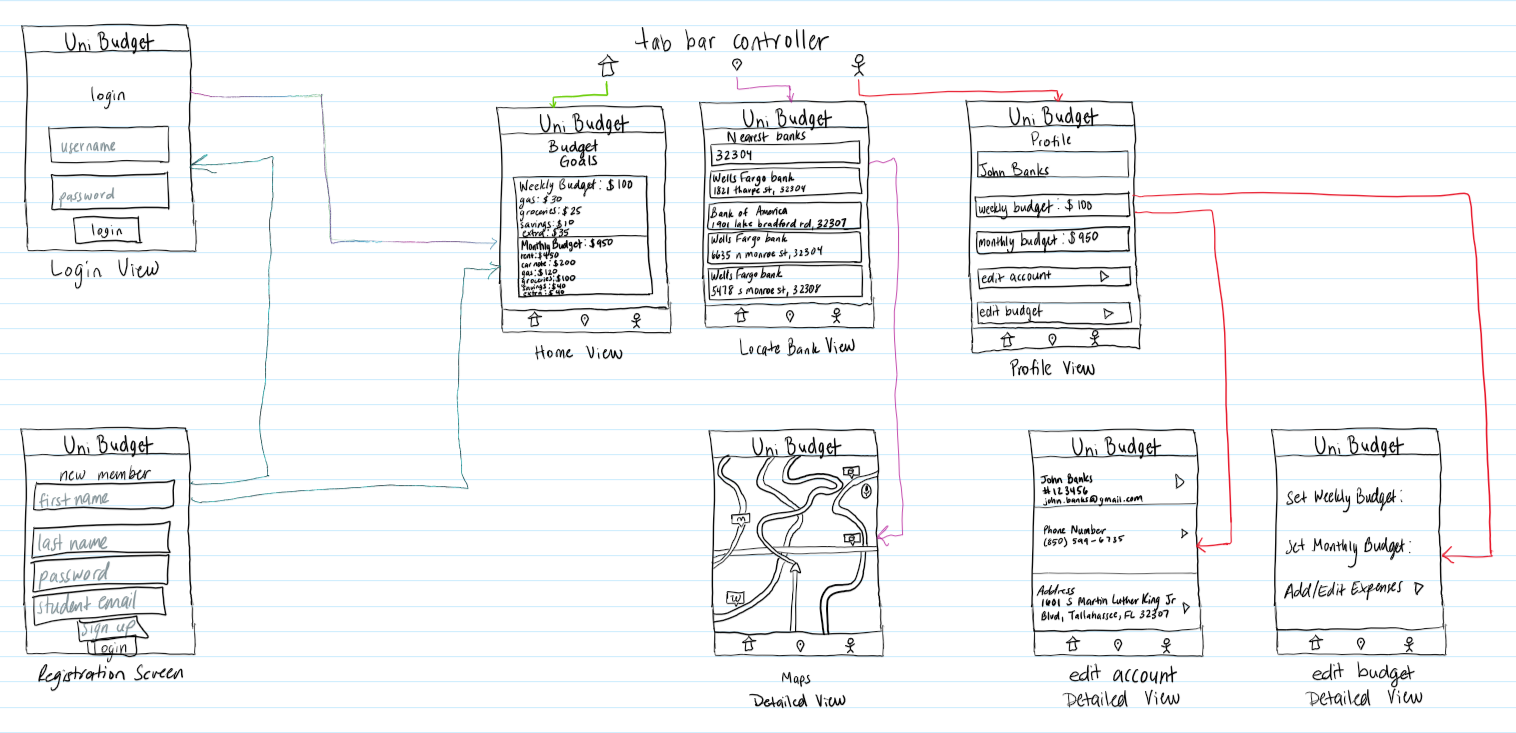 tab bar controller
Uni Budget
login
username
password
login
Login View
Uni Budget
Budget
Goals
Weekly Budget: $100
gas: $30
groceries: $25
savings: $10
extra: $35
Monthly Budget: $950
rent: $450
car note: $200
gas: $120
groceries: $100
savings: $40
extra: $40
Home View
Uni Budget
Nearest banks
32304
Wells Fargo bank
1821 tharpe st, 32304
Bank of America
1901 lake bradford rd, 32307
Wells Fargo bank
6635 n monroe st, 32304
Wells Fargo bank
5478 s monroe st, 32308
Locate Bank View
Uni Budget
Profile
John Banks
weekly budget: $100
monthly budget: $950
edit account
edit budget
Profile View
Uni Budget
new member
first name
last name
password
student email
sign up
login
Registration Screen
Uni Budget
M
W
Maps
Detailed View
Uni Budget
John Banks
#123456
john.banks@gmail.com
Phone Number
(850) 599-6735
Address
1601 S Martin Luther King Jr
Blvd, Tallahassee, FL 32307
edit account
Detailed View
Uni Budget
Set Weekly Budget:
Set Monthly Budget:
Add/Edit Expenses
edit budget
Detailed View